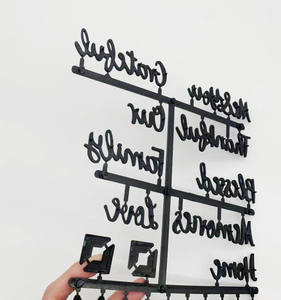 Grateful
Blessed
Our
Thankful
Family
Blessed
Love
Memories
Home